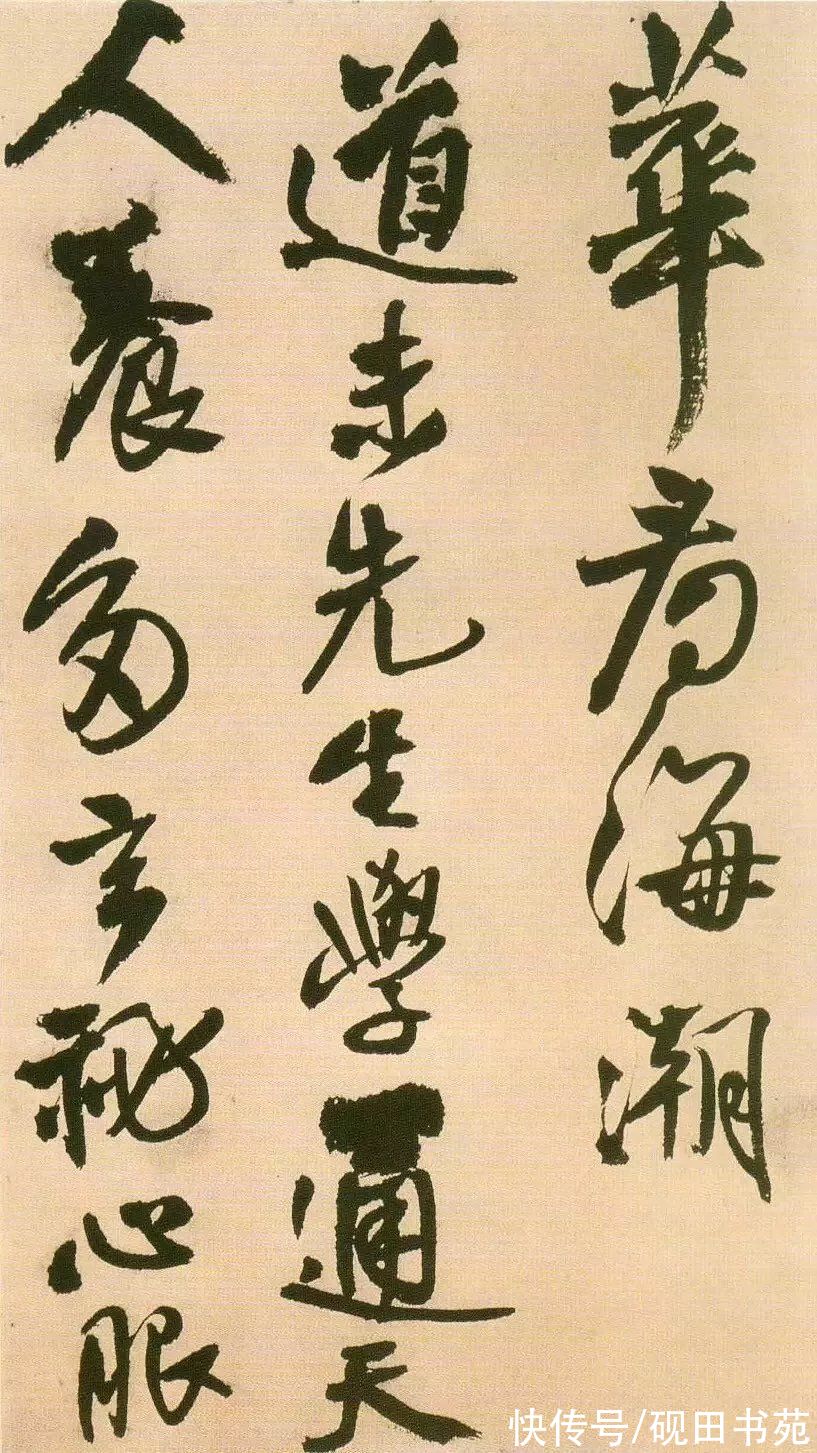 華看海潮
道未先生學通天
人養多玄秘心服
快传号/砚田书苑